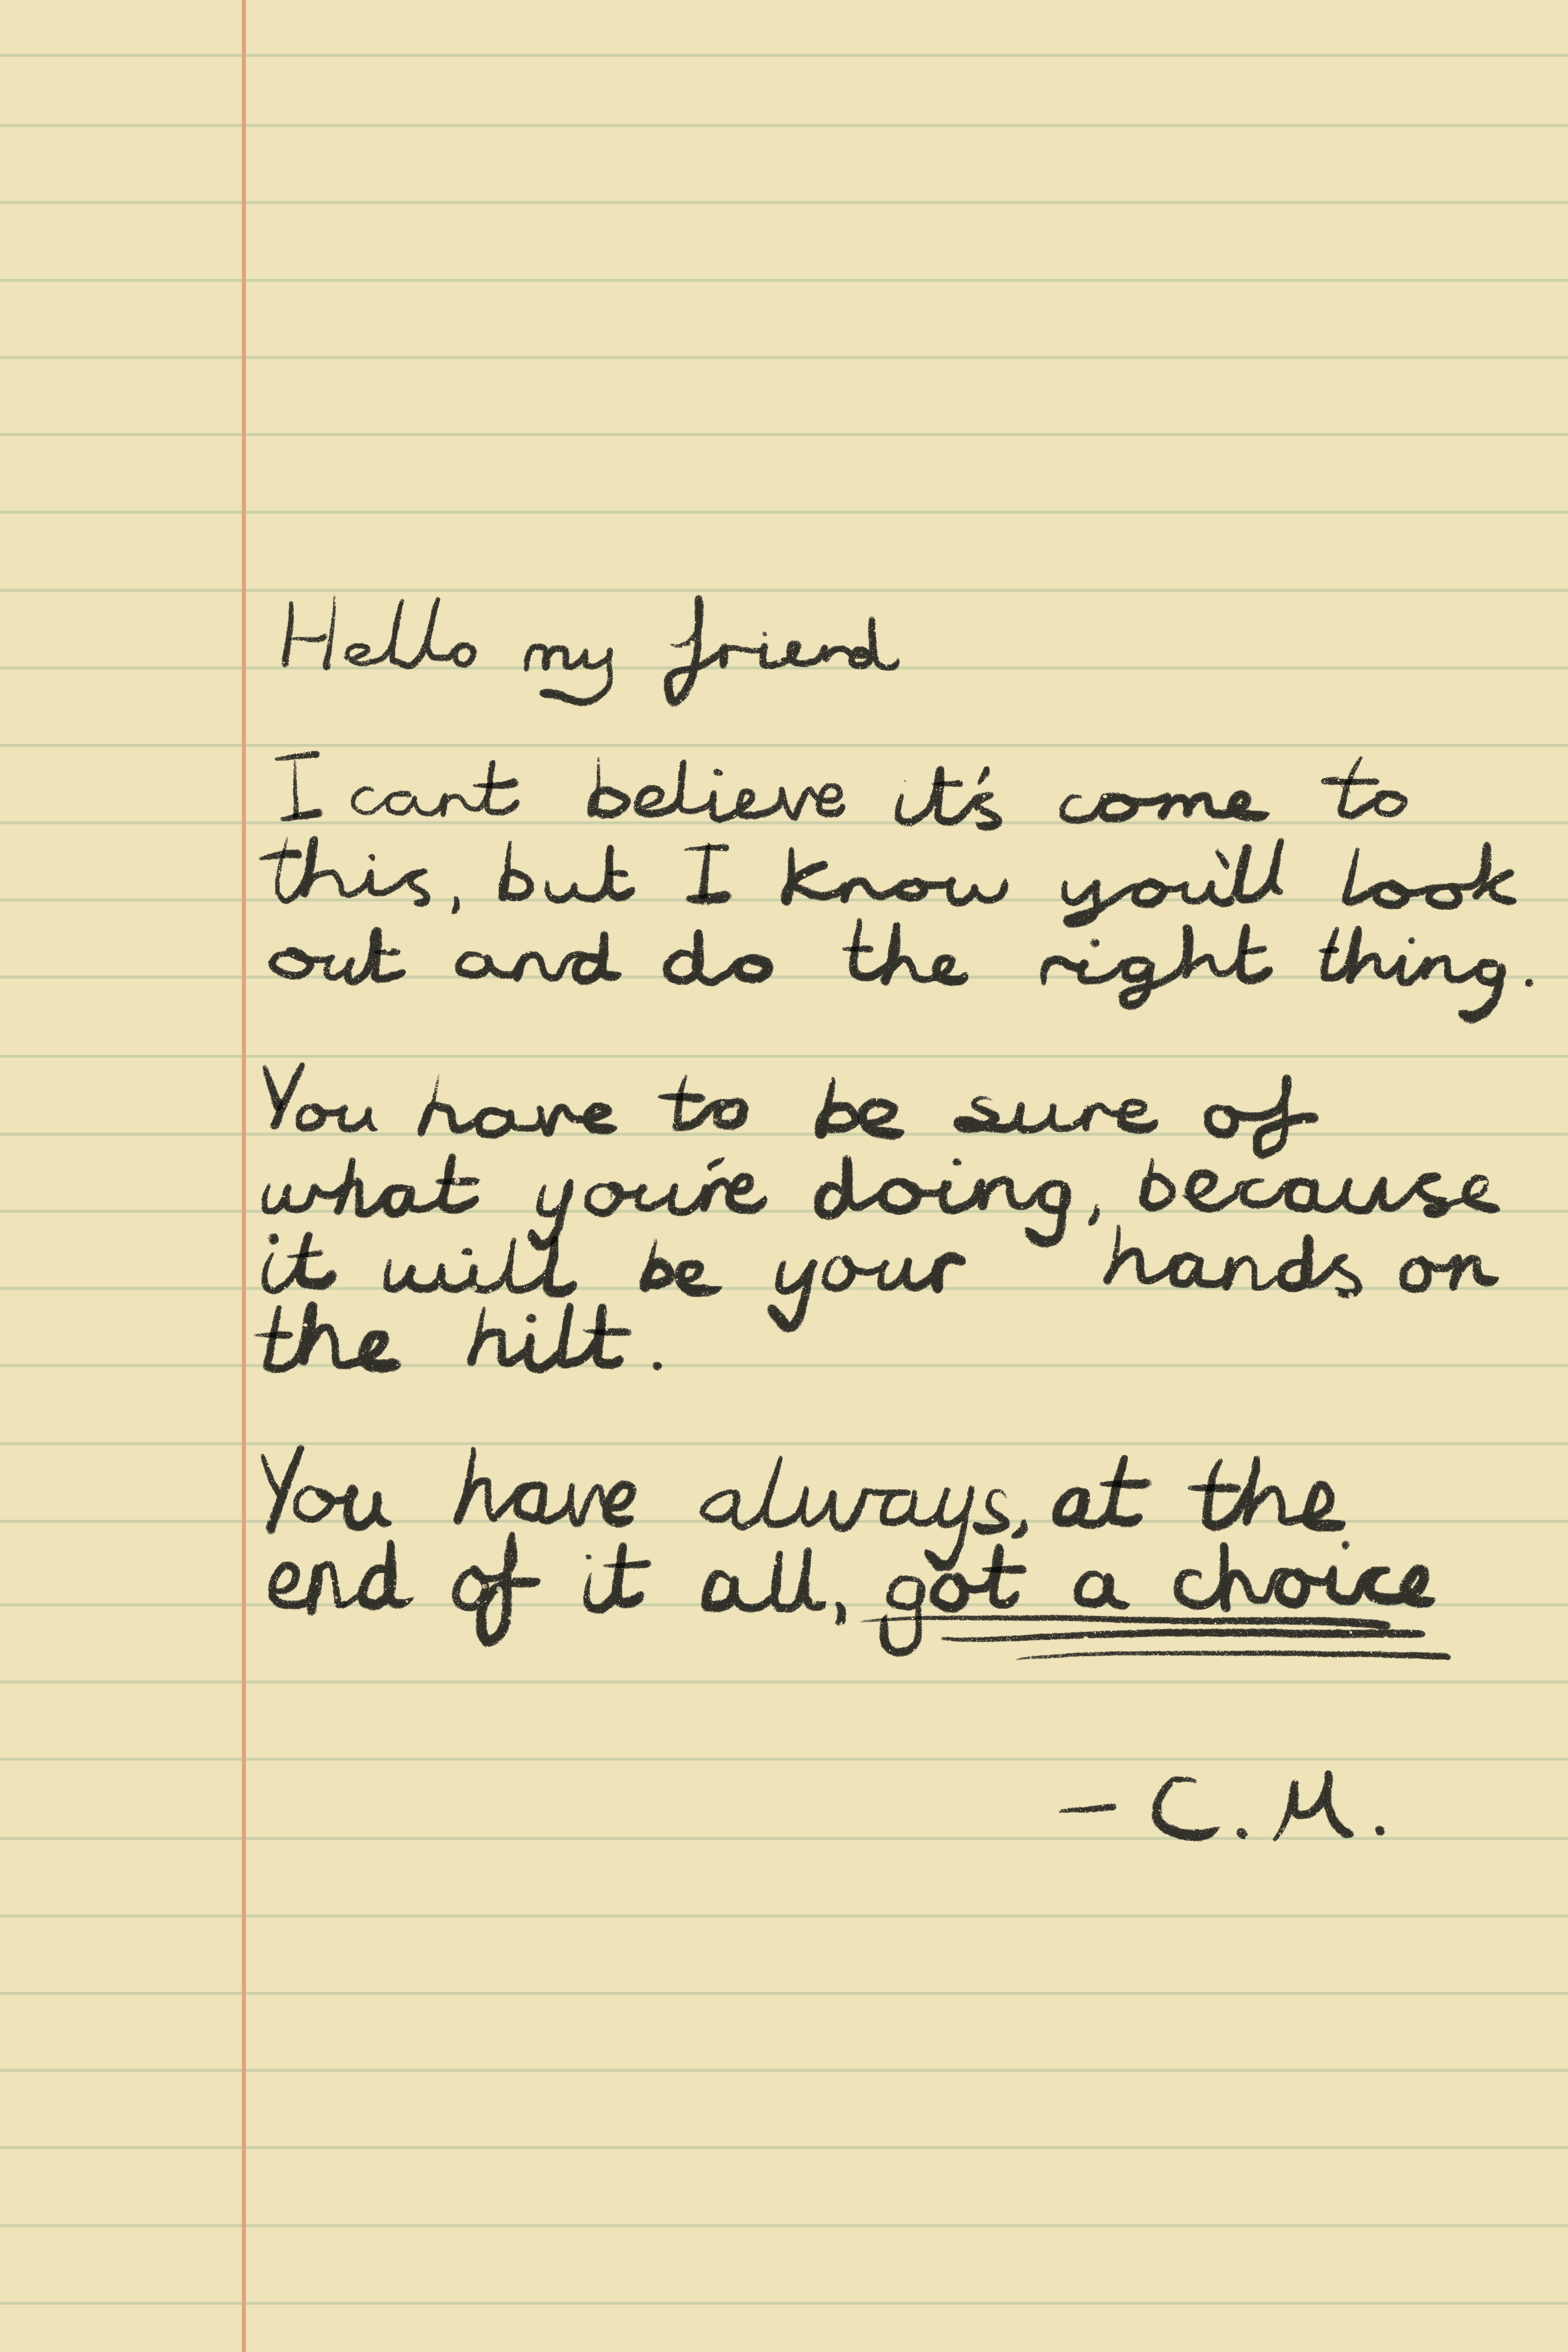 Hello my friend
I cant believe it's come to
this, but I know you'll look
out and do the right thing.
You have to be sure of
what you're doing, because
it will be your hands on
the hilt.
You have always, at the
end of it all, got a choice
- C.M.